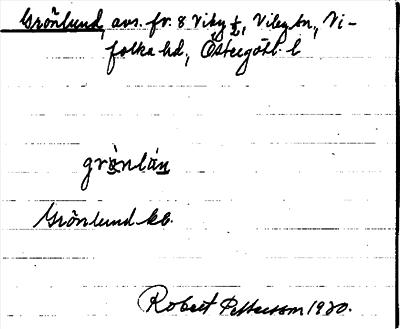 Grönlund, avs. fr. 8 Viby 1/2, Viby sn, Vi-
folka hd, Östergötl. l
grònlán
Grönlund kb.
Robert Pettersson 1920.